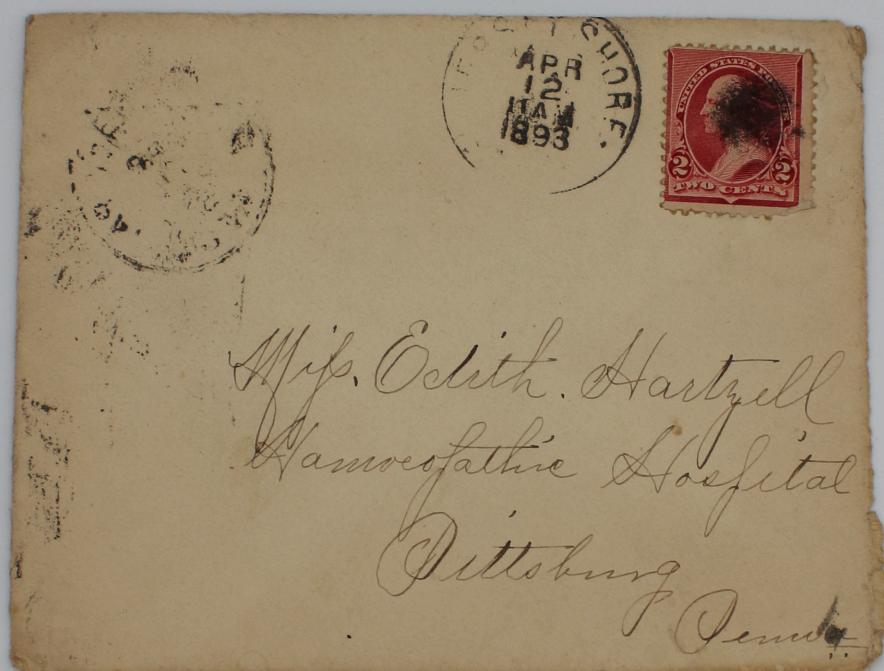 APR
12
11 AM
1893
UNITED STATES POSTAGE
2 2
TWO CENTS
Miss. Edith. Hartzell
Hamoeopathic Hospital
Pittsburg
Penna